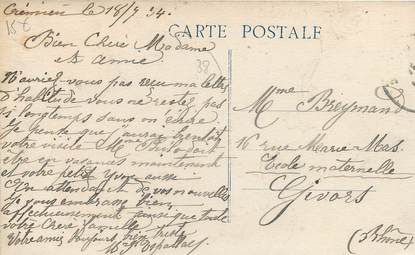 Crémieu le 18/7 34.
CARTE POSTALE
Bien Chère Madame
et amie
N'auriez-vous pas reçu ma lettre
d'habitude vous ne restez pas
si longtemps sans m'écrire
Je pense que j'aurai bientôt
votre visite Mr B doit
être en vacances maintenant
et votre petit Yvon aussi
En attendant de vos nouvelles
Je vous embrasse bien
affectueusement ainsi que toute
votre Chère famille
Votre amie toujours bien triste
38
Mme Breynand
16 rue Marie Mas.
Ecole maternelle
Givors
(Rhône)